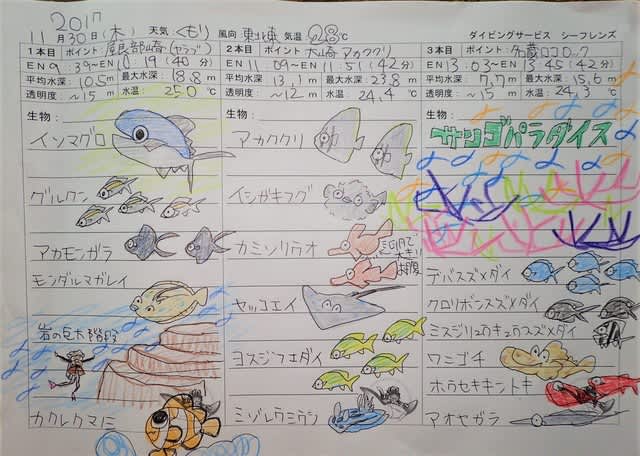 2017
11月30日(木) 天気 くもり 風向 東北東 気温 28℃ ダイビングサービス シーフレンズ
1本目 ポイント 屋良部崎(ヤラブ)
EN 9:39~EN 10:19(40分)
平均水深: 10.5m 最大水深: 18.8m
透明度: ~15m 水温: 25.0℃
生物:
イソマグロ
グルクン
アカモンガラ
モンダルマガレイ
岩の巨大階段
カクレクマノミ
2本目 ポイント 大崎 アカククリ
EN 11:09~EN 11:51(42分)
平均水深: 13.1m 最大水深: 23.8m
透明度: ~12m 水温: 24.4℃
生物:
アカククリ
イシガキフグ
カミソリウオ
ヤッコエイ
ヨスジフエダイ
ミゾレウミウシ
3本目 ポイント 名蔵ロコロック
EN 13:03~EN 13:45(42分)
平均水深: 7.7m 最大水深: 15.6m
透明度: ~15m 水温: 24.3℃
生物:
サンゴパラダイス
デバスズメダイ
クロリボンスズメダイ
ミスジリュウキュウスズメダイ
ワニゴチ
ホウセキキントキ
アオヤガラ